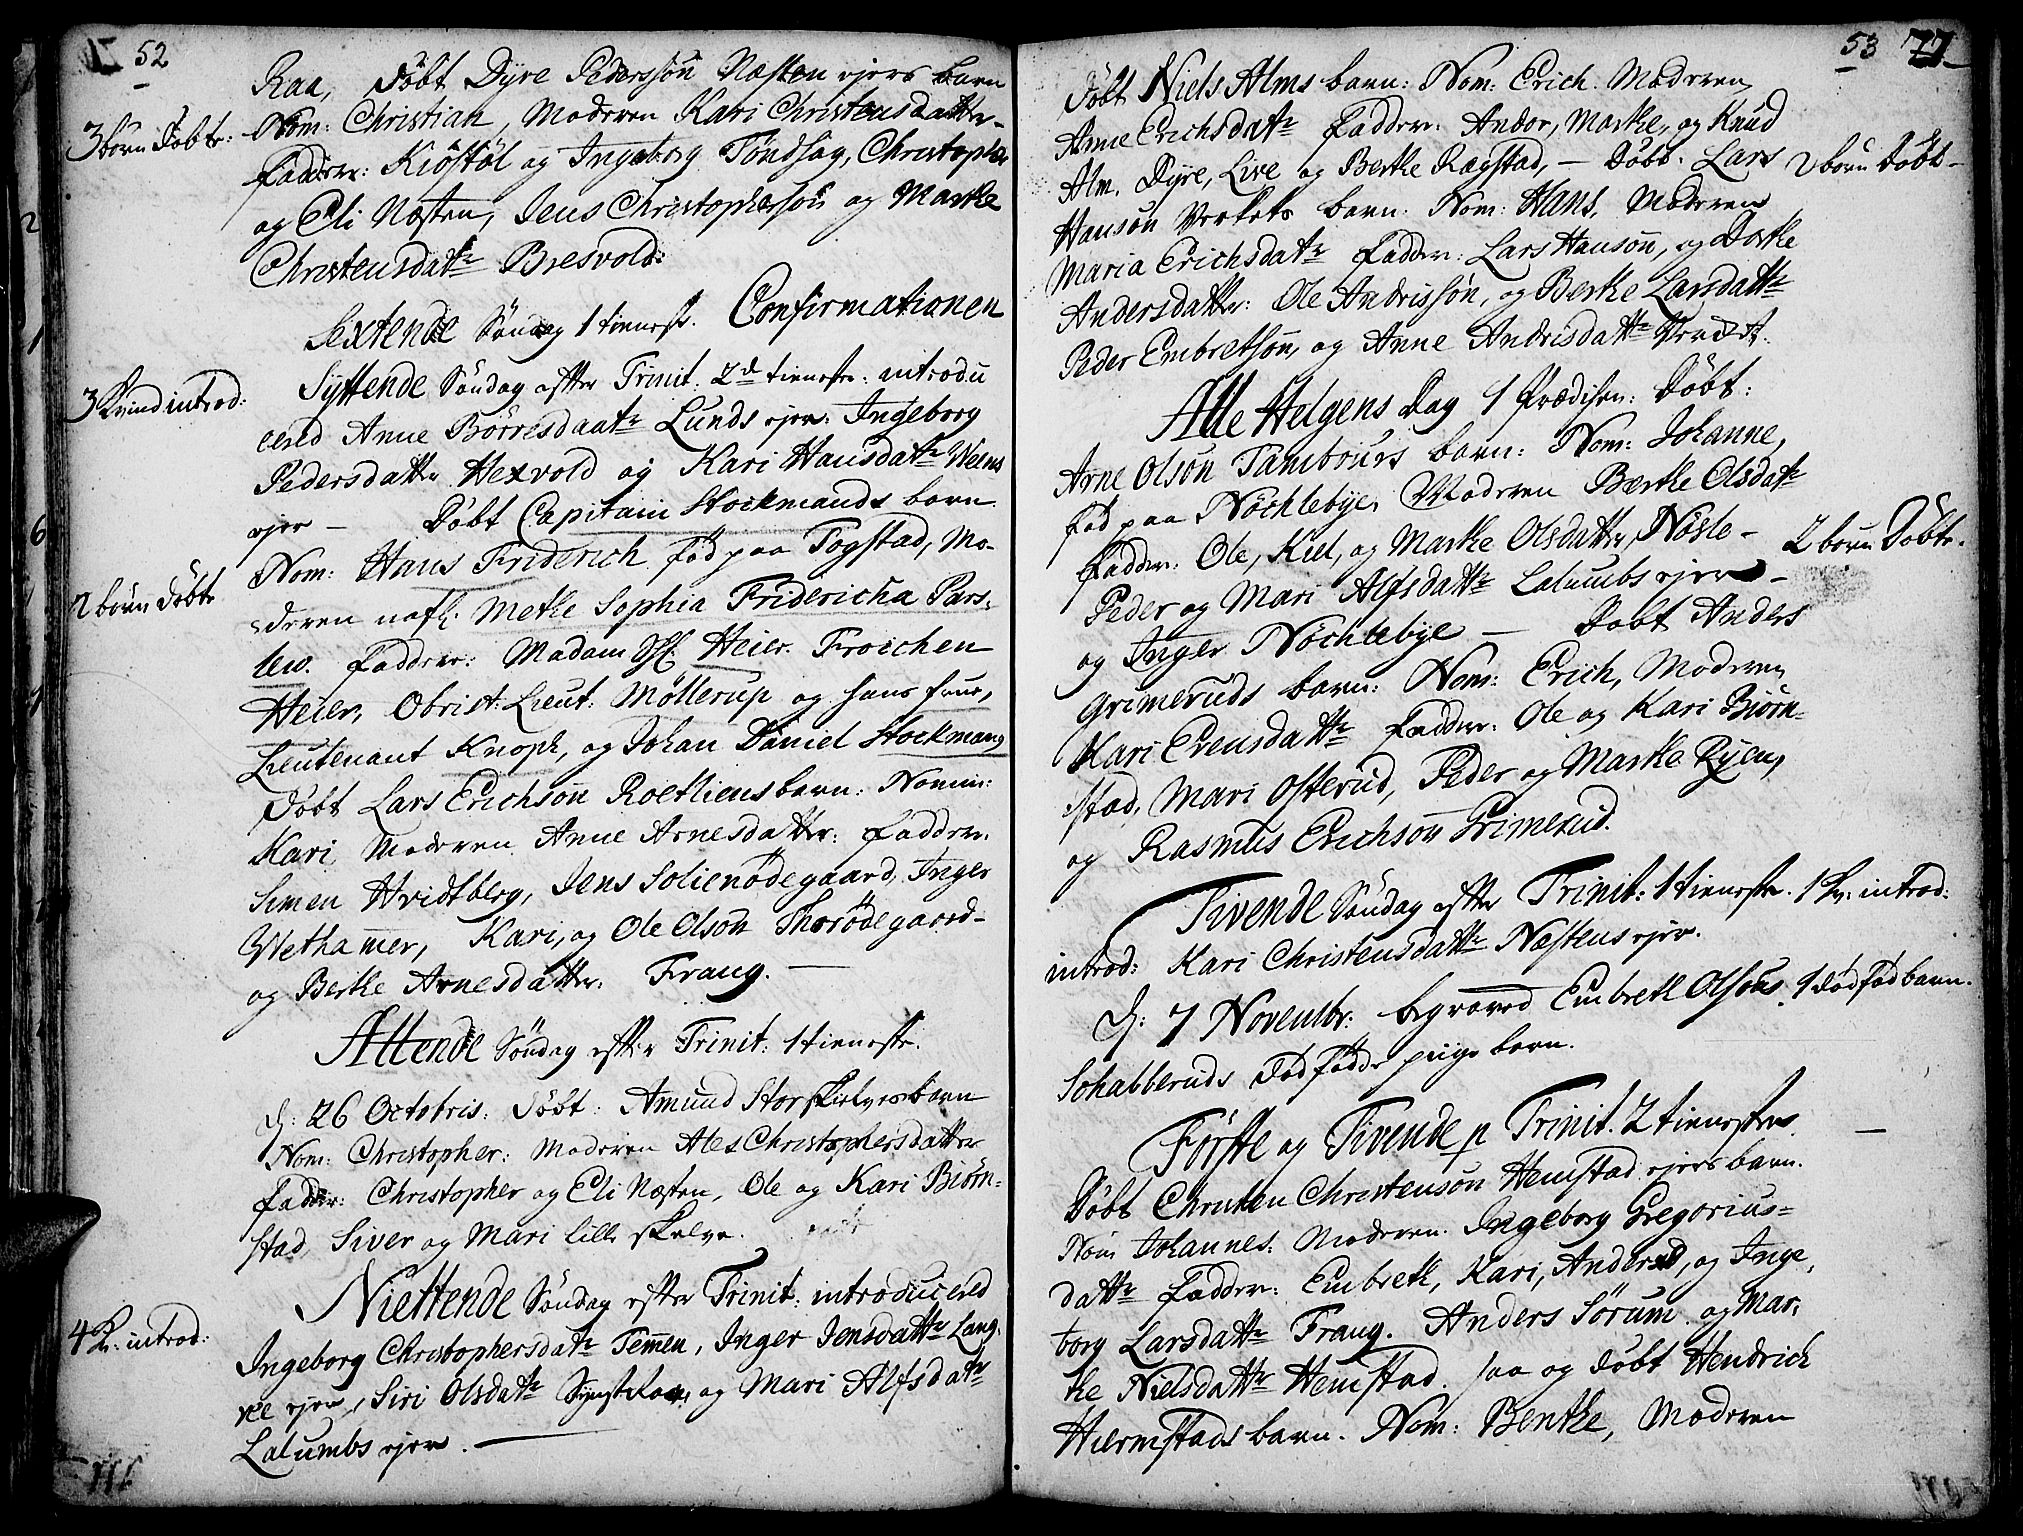 52
Raa, Døbt Dyre Pedersøn Næsten ejers barn
3 børn Døbte:
Nom: Christian, Moderen Kari Christensdatter
Faddere: Kiøstøl og Ingeborg Tøndsag, Christopher
og Eli Næsten, Jens Christophersøn og Marthe
Christensdatr Bresvold:
Sextende Søndag 1 tieneste. Confirmationen
Syttende Søndag efter Trinit. 2d tieneste: introdu
3 Kvind introd:
cered Anne Børresdaatr Lunds ejer: Ingeborg
Pedersdatter Hexvold og Kari Hansdatr Wetns
ejer — Døbt Capitain Stockmands barn
Nom: Hans Friderich fød paa Togstad, Mo-
2 børn døbte
deren nafl: Mette Sophia Fridericha Pars-
lew. Faddere: Madam Heier. Froichen
Heier, Obrist: Lieut: Møllerup og hans frue,
Lieutenant Knoph, og Johan Daniel Stockmang
Døbt Lars Erichsøn Roetliens barn: Nomin:
Kari Moderen Anne Arnesdatter: Faddere
Simen Hvidtberg, Jens Solienødegaard, Inger
Wethamer, Kari, og Ole Olsøn Thorødegaard-
og Berthe Arnesdatter: Frang. —
Attende Søndag efter Trinit: 1 tieneste.
d: 26 Octobris: Døbt: Amund Storskielves barn
Nom: Christopher: Moderen Ales Christophersdatter
Fadder: Christopher og Eli Næsten, Ole og Kari Biørn-
stad, Siver og Mari lille skelve.
Niettende Søndag efter Trinit: introducered
4 K: introd:
Ingeborg Christophersdatr Temen, Inger Jensdattr Lang-
ejer, Siri Olsdatr og Mari Alfsdatr
Lalumbs ejer. —
53 77
Døbt Niels Alms barn: Nom: Erich. Moderen
Anne Erichsdatr Fadder: Andor, Marthe, og Knud
Alm. Dyre, Live og Berthe Rægstad, — Døbt. Lars
2 børn Døbt—
Hansøn Verkets barn. Nom: Hans, Moderen
Maria Erichsdatr Fadder: Lars Hansøn, og Dorthe
Andersdatter: Ole Andrissøn, og Berthe Larsdattr
Peder Embretsøn, og Anne Andrisdattr
Alle Helgens Dag 1 Prædiken: Døbt:
Arne Olsøn Tambours barn: Nom: Johanne,
fød paa Nøchlebye, Moderen Berthe Olsdatr
Fadder: Ole, Kiel, og Marthe Olsdatter, Nøsle-
2 børn Døbte.
Peder og Mari Alfsdattr Lalumbs ejer —
og Inger Nøchlebye — Døbt Anders
Grimeruds barn: Nom: Erich, Moderen
Kari Evensdattr Fadder: Ole og Kari Biørn-
stad, Mari Osterud, Peder og Marthe Ryen,
og Rasmus Erichsøn Grimerud.
Tivende Søndag efter Trinit: 1 tieneste. 1 kv: introd:
introd: Kari Christensdattr Næstens ejer.
d: 7 Novembr: begraved Embreth Olsøns
1 dødfød barn.
Schabberuds Dødfødde pige barn.
Første og Tivende p Trinit. 2 tienesten
—
Døbt Christen Christensøn Hemstad ejers barn.
Nom Johannes: Moderen. Ingeborg Gregorius-
dattr Fadder: Embreth, Kari, Anders, og Inge-
borg Larsdattr Frang. Anders Sørum og Mar-
the Nielsdattr Hemstad. saa og døbt Hendrich
Hiermstads barn. Nom: Benthe, Moderen